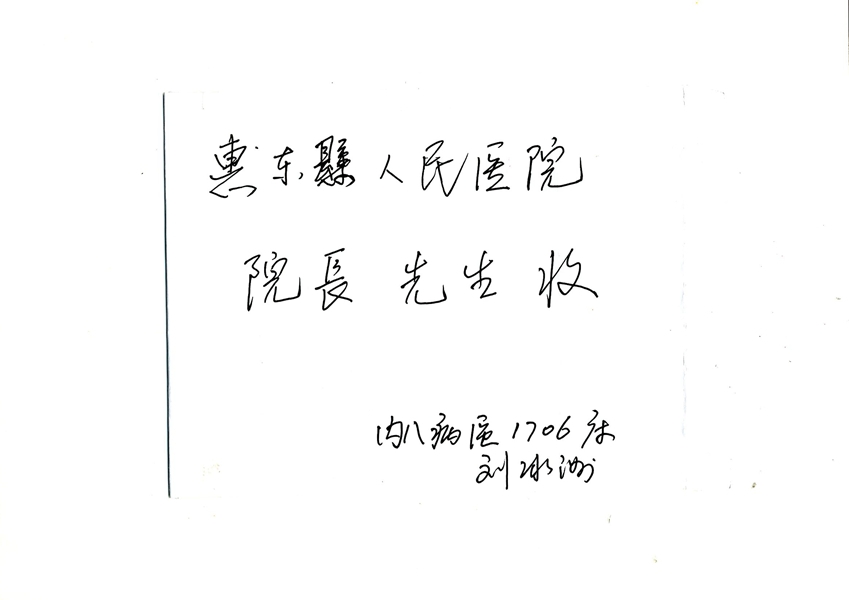 惠东縣人民医院
院長 先生 收
内八病区1706床
刘冰洲